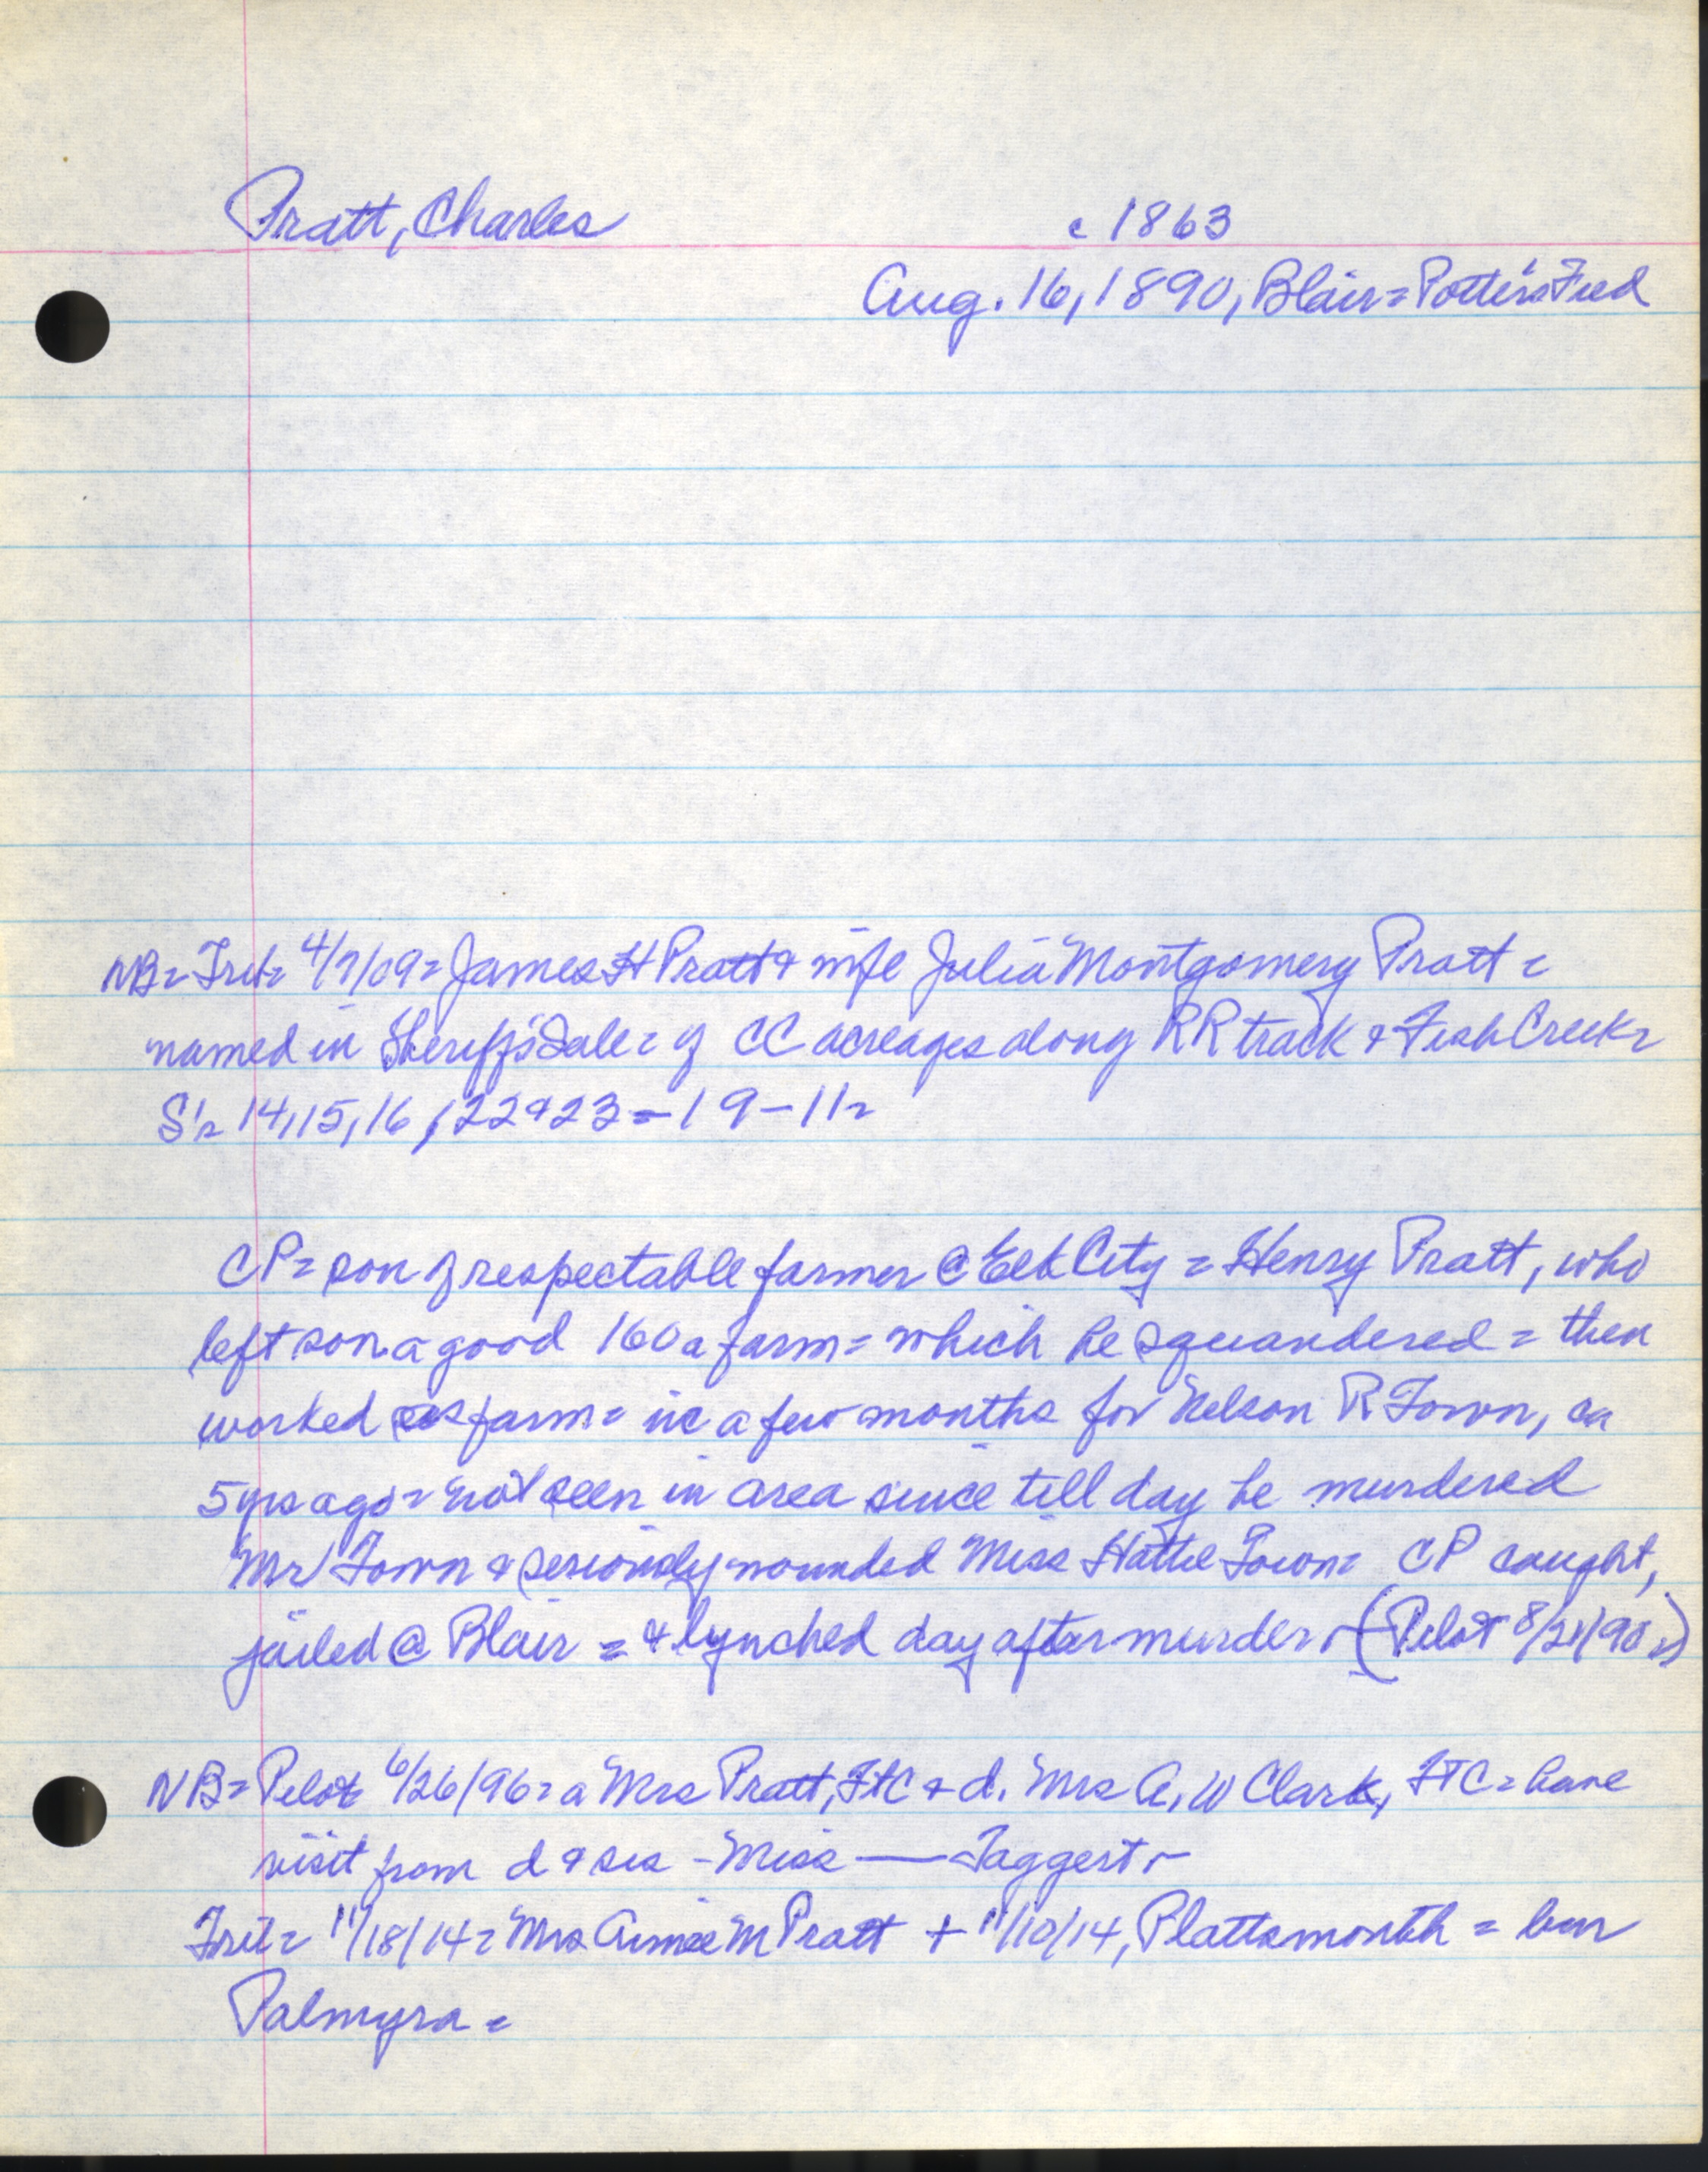 Pratt, Charles c 1863
Aug. 16, 1890, Blair = Potter's Field
NB = Trib = 4/7/09 = James H Pratt & wife Julia Montgomery Pratt =
named in Sheriff's Sale = of CC acreages along RR track & Fish Creek =
S's 14, 15, 16, 22 & 23 = 19-11 =
CP = son of respectable farmer @ Elk City = Henry Pratt, who
left son a good 160 a farm = which he squandered = then
worked as farm = in a few months for Nelson R Town, ca
5 yrs ago = not seen in area since till day he murdered
Mr Town & seriously wounded Miss Hattie Town = CP caught,
jailed @ Blair = & lynched day after murder - (Pilot 8/21/90 =)
NB = Pilot 6/26/96 = a Mrs Pratt, FtC & d. Mrs A. W Clark, FTC = have
visit from d & sis - Miss — Taggert -
Trib = 11/18/14 = Mrs Aimee M Pratt + 11/10/14, Plattsmouth = bur
Palmyra =